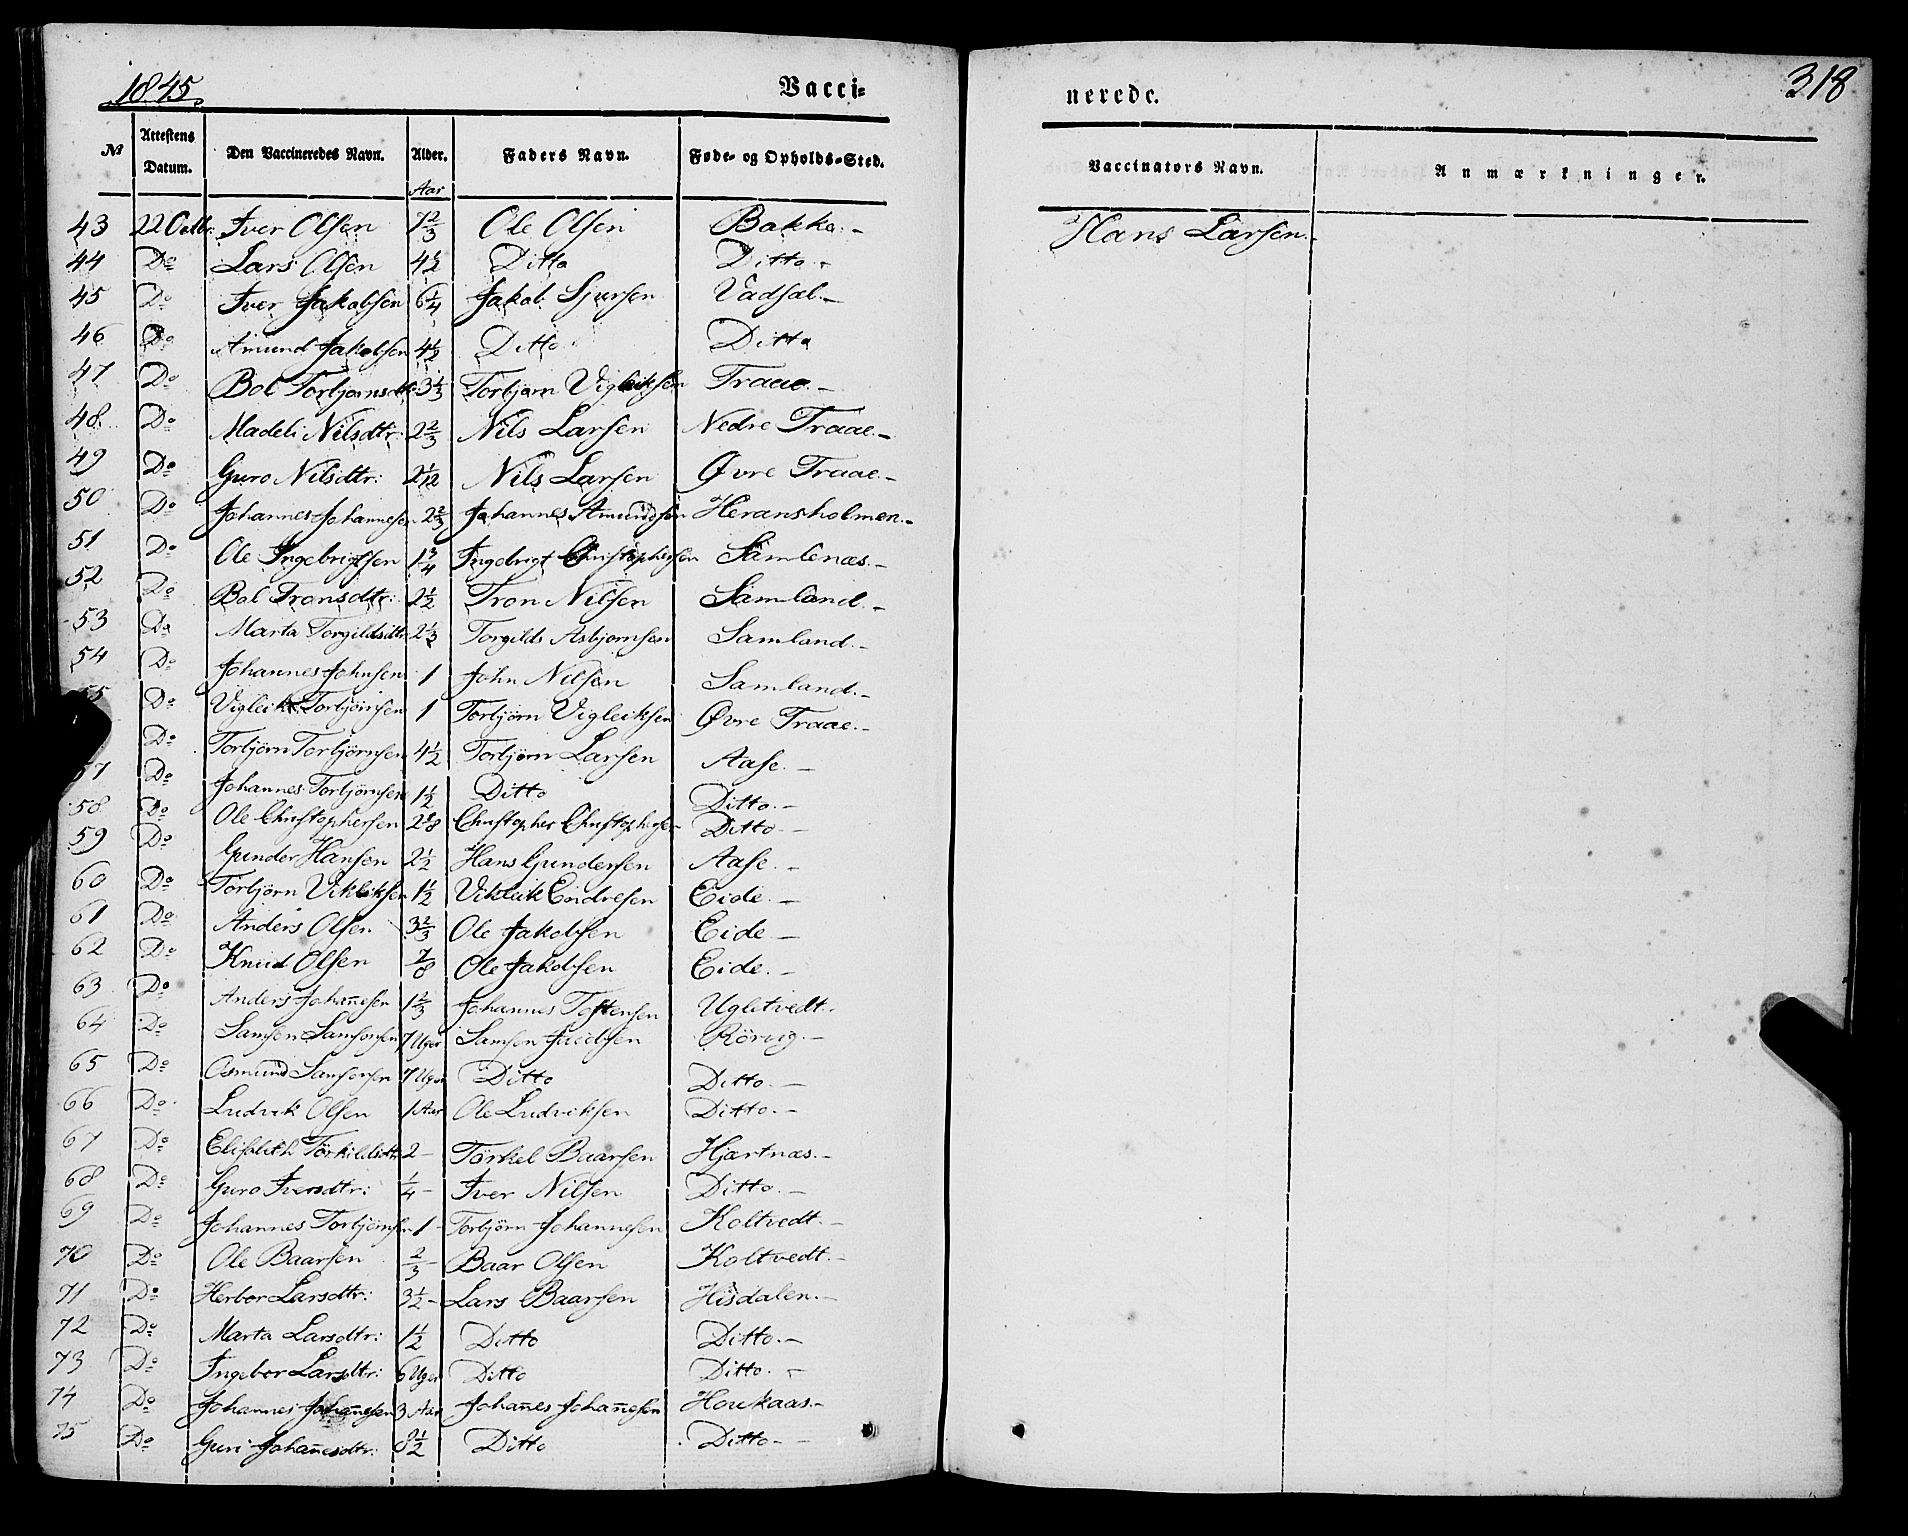 1845. Vacci= nerede. 318
№ Attestens Datum. Den Vaccineredes Navn. Alder. Faders Navn. Føde- og Opholds-Sted. Vaccinators Navn. Anmærkninger.
Aar
43 22 Octbr: Iver Olsen 1 2/3 Ole Olsen Bakke.- Hans Larsen.-
44 Do Lars Olsen 4 1/2 Ditto Ditto.-
45 Do Iver Jakobsen 6 1/4 Jakob Sjursen Vadsal.-
46 Do Amund Jakobsen 4 1/2 Ditto Ditto
47 Do Bol Torbjørnsdtr: 3 1/3 Torbjørn Vigleiksen Traae.-
48. Do Madeli Nilsdtr: 2 2/3 Nils Larsen Nedre Traae.-
49 Do Guro Nilsdtr: 2 1/12 Nils Larsen Øvre Traae.-
50 Do Johannes Johannesen 2 2/3 Johannes Amundsen Heransholmen.-
51 Do Ole Ingebrigtsen 1 3/4 Ingebrigt Christophersen Samlenæs.-
52 Do Bol Tronsdtr: 2 1/2 Tron Nilsen Samland.-
53 Do Marta Torgildsdtr 2 1/3 Torgilds Asbjørnsen Samland.-
54 Do Johannes Johnsen 1 John Nilsen Samland.-
55 Do Vigleik Torbjørnsen 1 Torbjørn Vigleiksen Øvre Traae.-
Do Torbjørn Torbjørnsen 4 1/2 Torbjørn Larsen Aase.-
57 Do Johannes Torbjørnsen 1 1/2 Ditto Ditto.-
58 Do Ole Christophersen Christopher Christophersen Ditto.-
59 Do Gunder Hansen 2 1/2 Hans Gundersen Aase.-
60 Do Torbjørn Vikleiksen 1 1/2 Vikleik Endresen Eide.-
61 Do Anders Olsen 3 2/3 Ole Jakobsen Eide.-
62 Do Knud Olsen 7/8 Ole Jakobsen Eide.-
63 Do Anders Johan̄esen 1 2/3 Johannes Tostensen Ugletvedt.-
64 Do Samson Samsonsen 7 Uger Samson Jacobsen Rörvig.-
65 Do Osmund Samsonsen 7 Uger Ditto Ditto.-
66 Do Ludvik Olsen 1 Aar Ole Ludviksen Ditto.-
67 Do Elisabeth Törkildsdtr 2- Törkel Baarsen Hjartnæs.-
68 Do Guro Iversdtr: 1/4- Iver Nilsen Ditto.-
69 Do Johannes Torbjørnsen 1- Torbjørn Johannesen Koltvedt.-
70 Do Ole Baarsen 2/3- Baar Olsen Koltvedt.-
71 Do Herbor Larsdtr: 3 1/2- Lars Baarsen Hisdalen.-
72 Do Marta Larsdtr: 1 1/2 Ditto Ditto.-
73 Do Ingebor Larsdtr: 6 Uger Ditto Ditto.-
74 Do Johannes Johan̄esen 3 Aar Johan̄es Johan̄esen Houkaas.-
75 Do Guri Johan̄esdtr: 8 1/2 Ditto Ditto.-